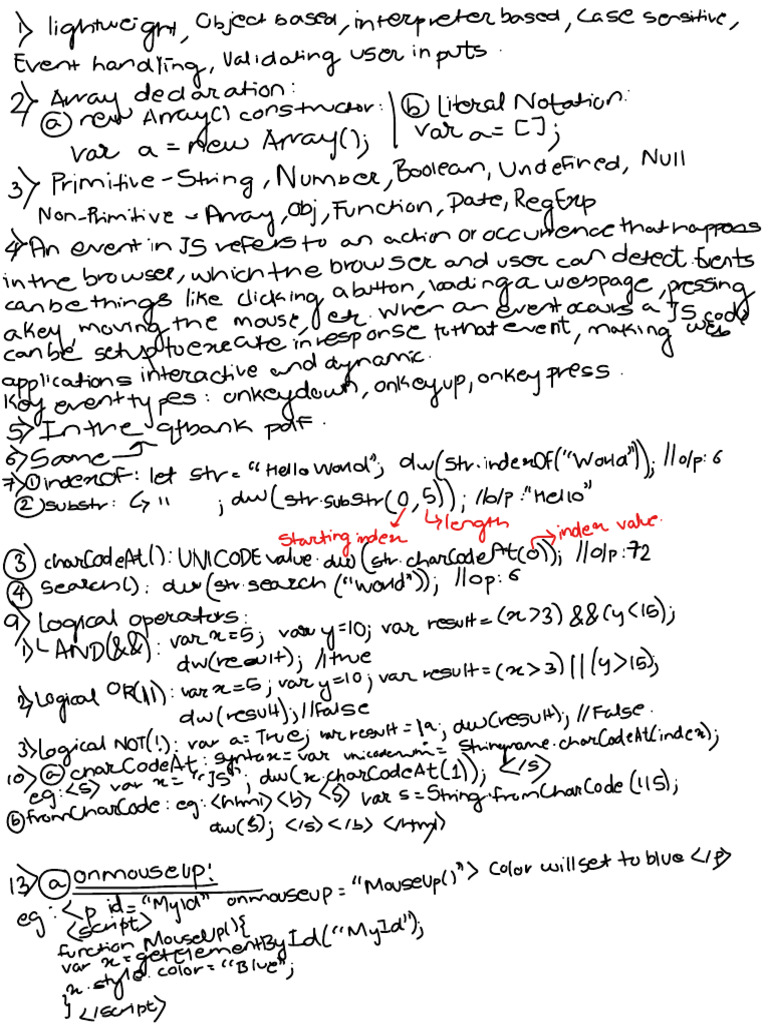 1) lightweight, Object based, interpreter based, case sensitive,
Event handling, Validating user inputs.
2) Array declaration:
ⓐ new Array() constructor: | ⓑ Literal Notation:
var a = new Array(); | var a = [];
3) Primitive - String, Number, Boolean, Undefined, Null
Non-Primitive - Array, Obj, Function, Date, RegExp
4) An event in JS refers to an action or occurrence that happens
in the browser, which the browser and user can detect. Events
can be things like clicking a button, loading a webpage, pressing
a key, moving the mouse, etc. When an event occurs a JS code
can be setup to execute in response to that event, making web
applications interactive and dynamic.
Key event types: onkeydown, onkeyup, onkeypress.
5) In the qtbank pdf.
6) Same
7) ① indexOf: let str = "Hello World"; dw(str.indexOf("World")); //o/p: 6
② substr: ↳ " ; dw(str.substr(0,5)); //o/p: "Hello"
Starting index ↳length
index value.
③ charCodeAt(): UNICODE value. dw(str.charCodeAt(0)); //o/p: 72
④ Search(): dw(str.search("World")); //op: 6
9) Logical operators:
1) AND(&&): var x=5; var y=10; var result = (x>3) && (y<15);
dw(result); //true
2) Logical OR(||): var x=5; var y=10; var result = (x>3) || (y>15);
dw(result); //False
3) Logical NOT(!): var a=True; var result = !a; dw(result); //False.
10) ⓐ charCodeAt: syntax = var unicodenum = Stringname.charCodeAt(index);
eg: <s> var x = "JS"; dw(x.charCodeAt(1)); </s>
ⓑ fromCharCode: eg: <html> <b> <s> var s = String.fromCharCode(115);
dw(s); </s> </b> </html>
13) ⓐ onmouseup:
eg: <p id="MyId" onmouseup = "MouseUp()"> Color will set to blue </p>
<script>
function MouseUp(){
var x = getElementById("MyId");
x.style.color = "Blue";
}
</script>